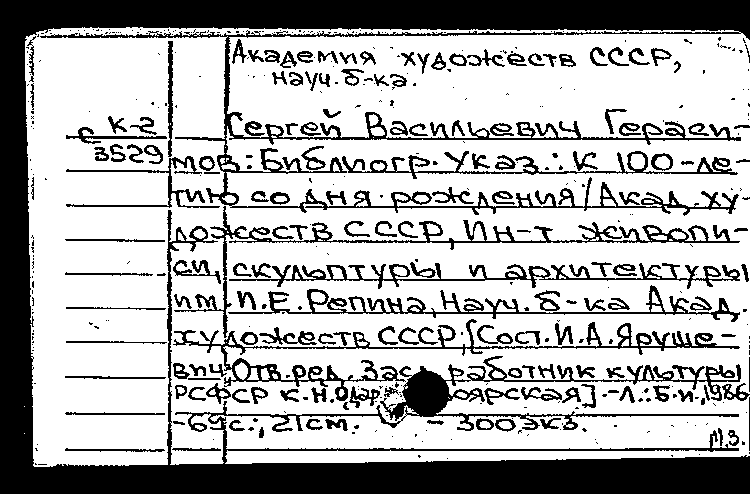 Академия художеств СССР,
науч. б-ка.
с К-2
3529
Сергей Васильевич Гераси-
мов: Библиогр. Указ.: К 100-ле-
тию со дня рождения / Акад. ху-
дожеств СССР, Ин-т живопи-
си, скульптуры и архитектуры
им. И.Е. Репина, Науч. б-ка Акад.
художеств СССР; [Сост. И.А. Яруше-
вич; Отв. ред. Засл. работник культуры
РСФСР К.Н. Одар оярская]. - Л.: Б.и., 1986
- 69с.; 21см. - 300экз.
М.З.